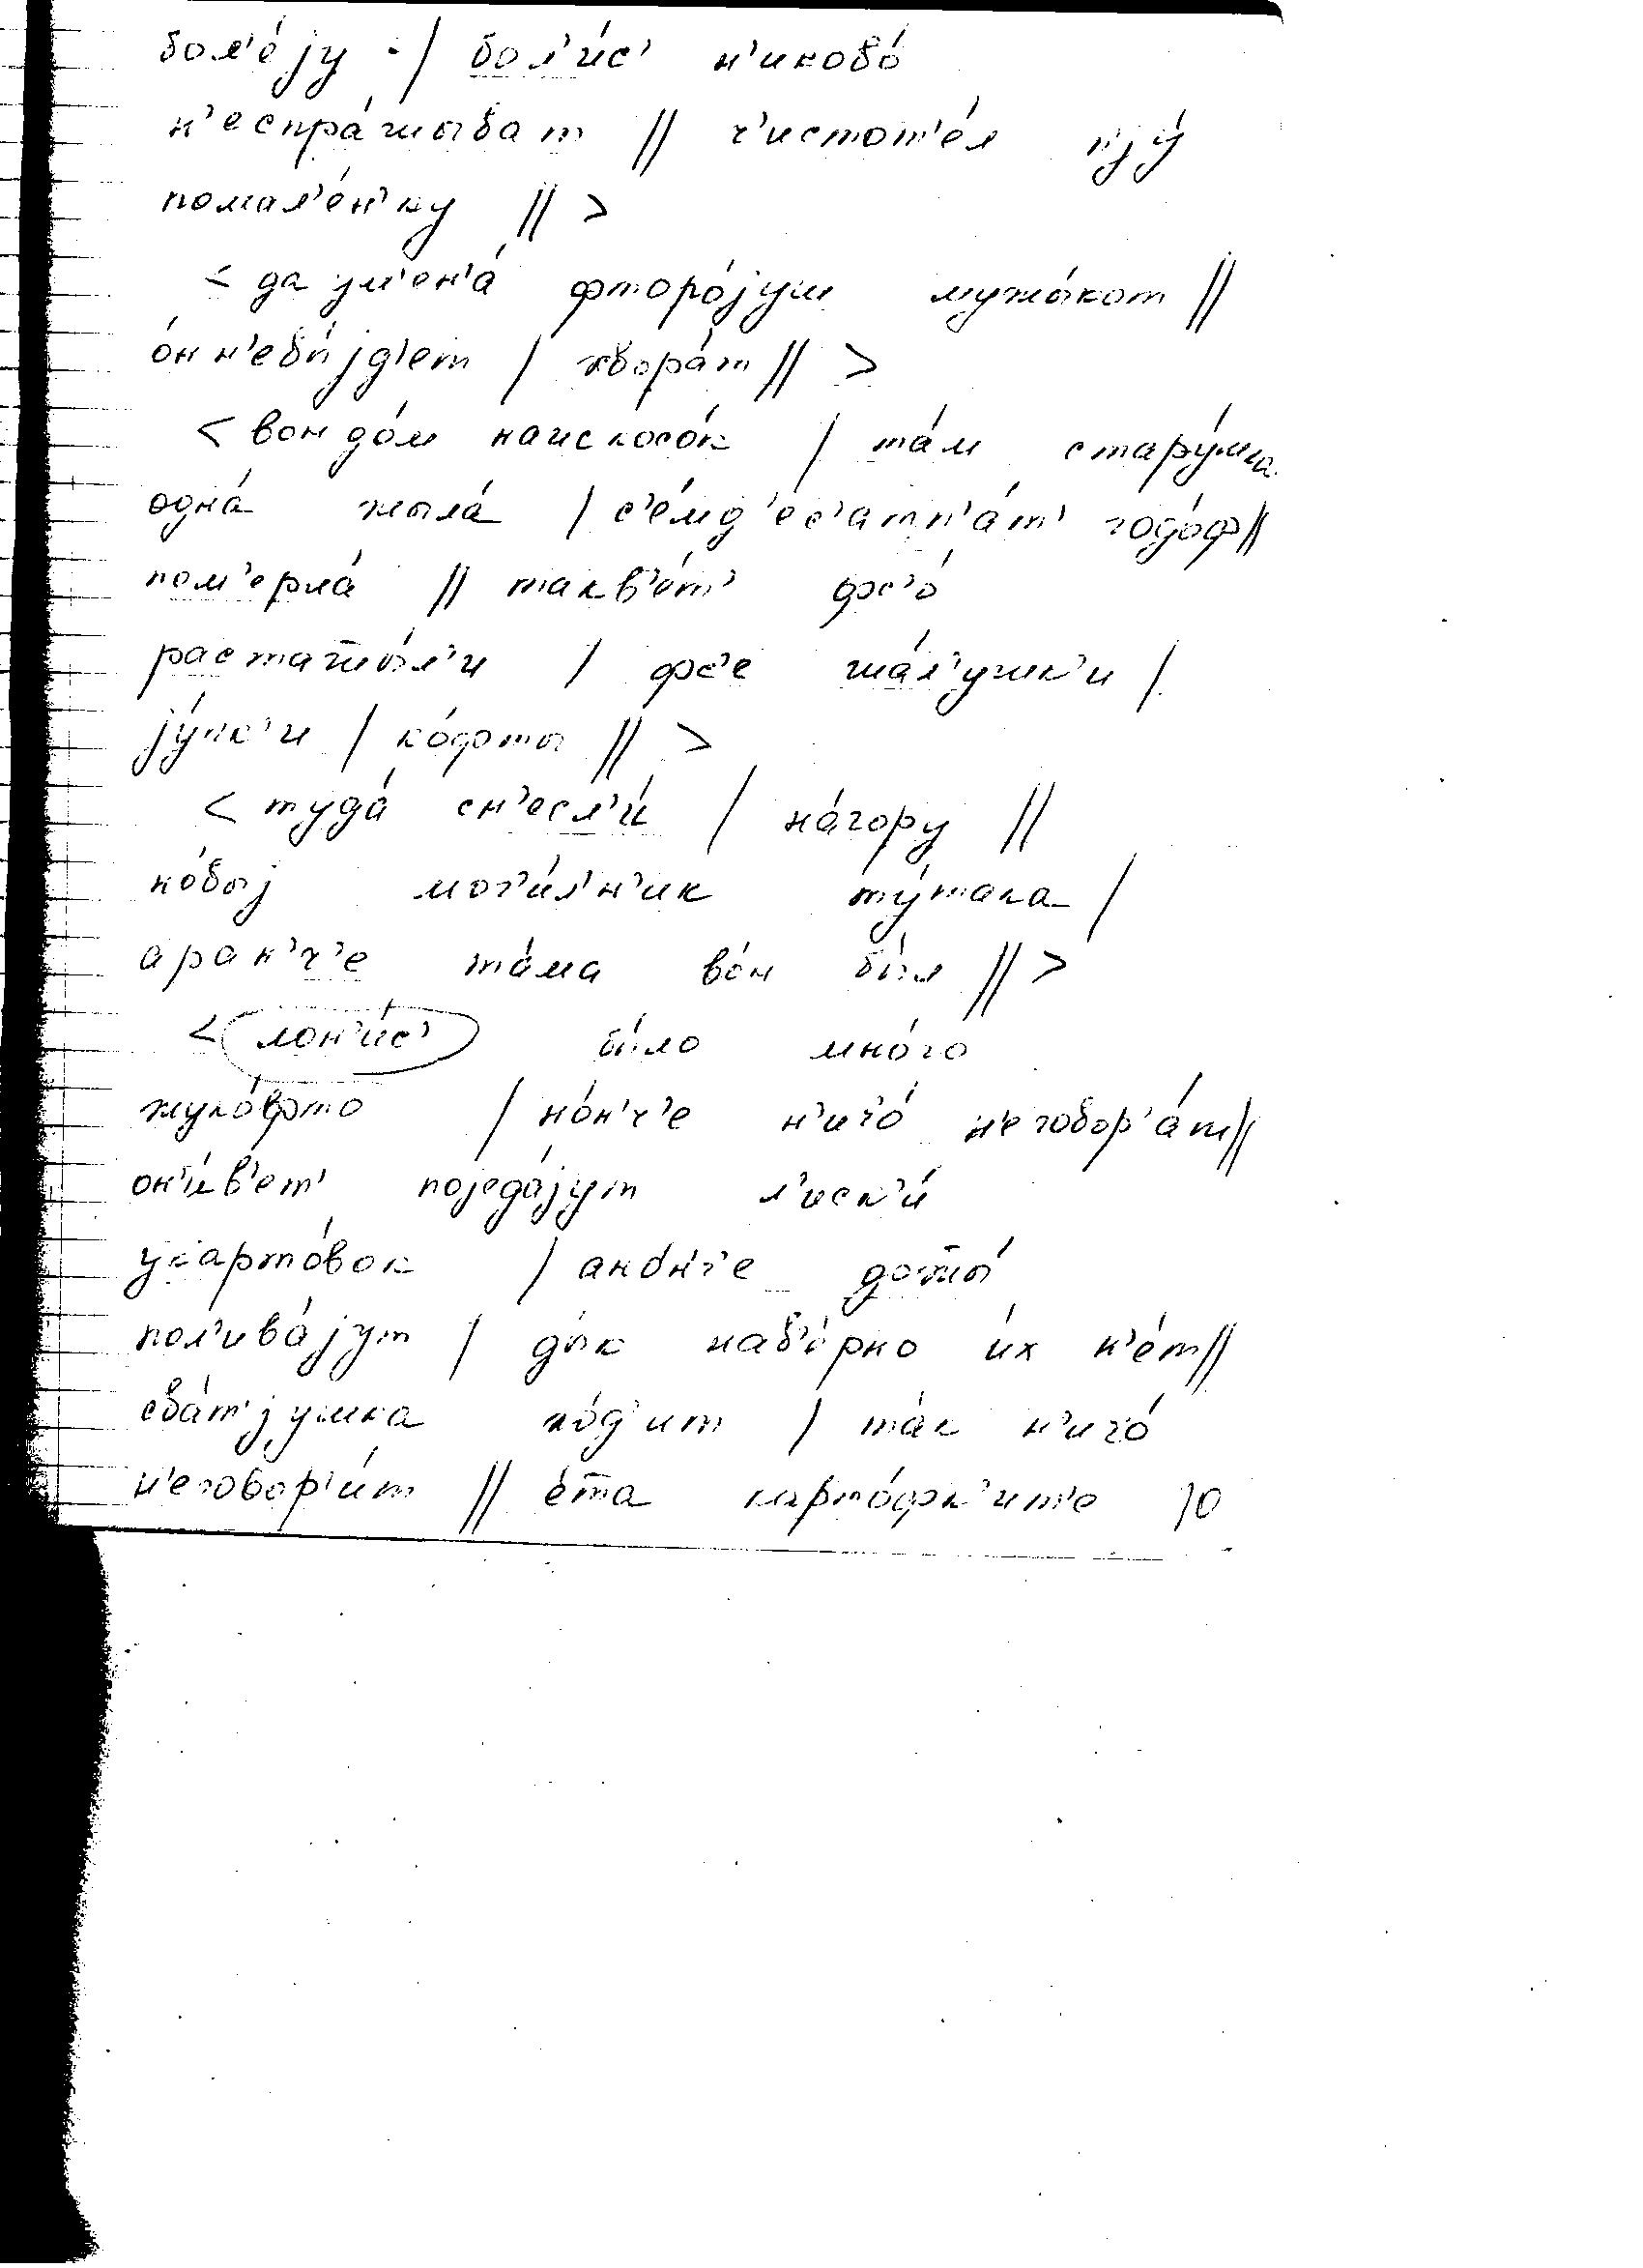 бол'е́jу | бол'и́с' н'иково́
н'еспра́шыват || ч'истот'е́л пjу́
помал'е́н'ку || >
< да ум'ен'а́ фторо́jуш мужы́кот ||
о́н н'ебы́jд'ет | хвора́т || >
< вон до́м наискосо́к | та́м стару́шка
одна́ жыла́ | с'е́мд'ес'атп'а́т' годо́ф ||
пом'ерла́ || такв'е́т' фс'о́
расташ̅ы́л'и | фс'е ша́л'ушк'и |
jу́пк'и | ко́фты || >
< туда́ сн'есл'и́ | на́гору ||
но́выj мог'и́л'н'ик ту́така |
аран'ч'е та́ма во́н бы́л || >
< лон'и́с' бы́ло мно́го
жуко́фто | но́н'ч'е н'ич'о́ н'еговор'а́т ||
он'и́в'ет' поjеда́jут л'иск'и́
укарто́вок | аны́н'ч'е дож̅ы́
пол'ива́jут | ды́к нав'е́рно и́х н'е́т ||
сва́т'jушка хо́д'ит | та́к н'ичо́
н'еговор'и́т || е́т̅а карто́фк'ит'е 10